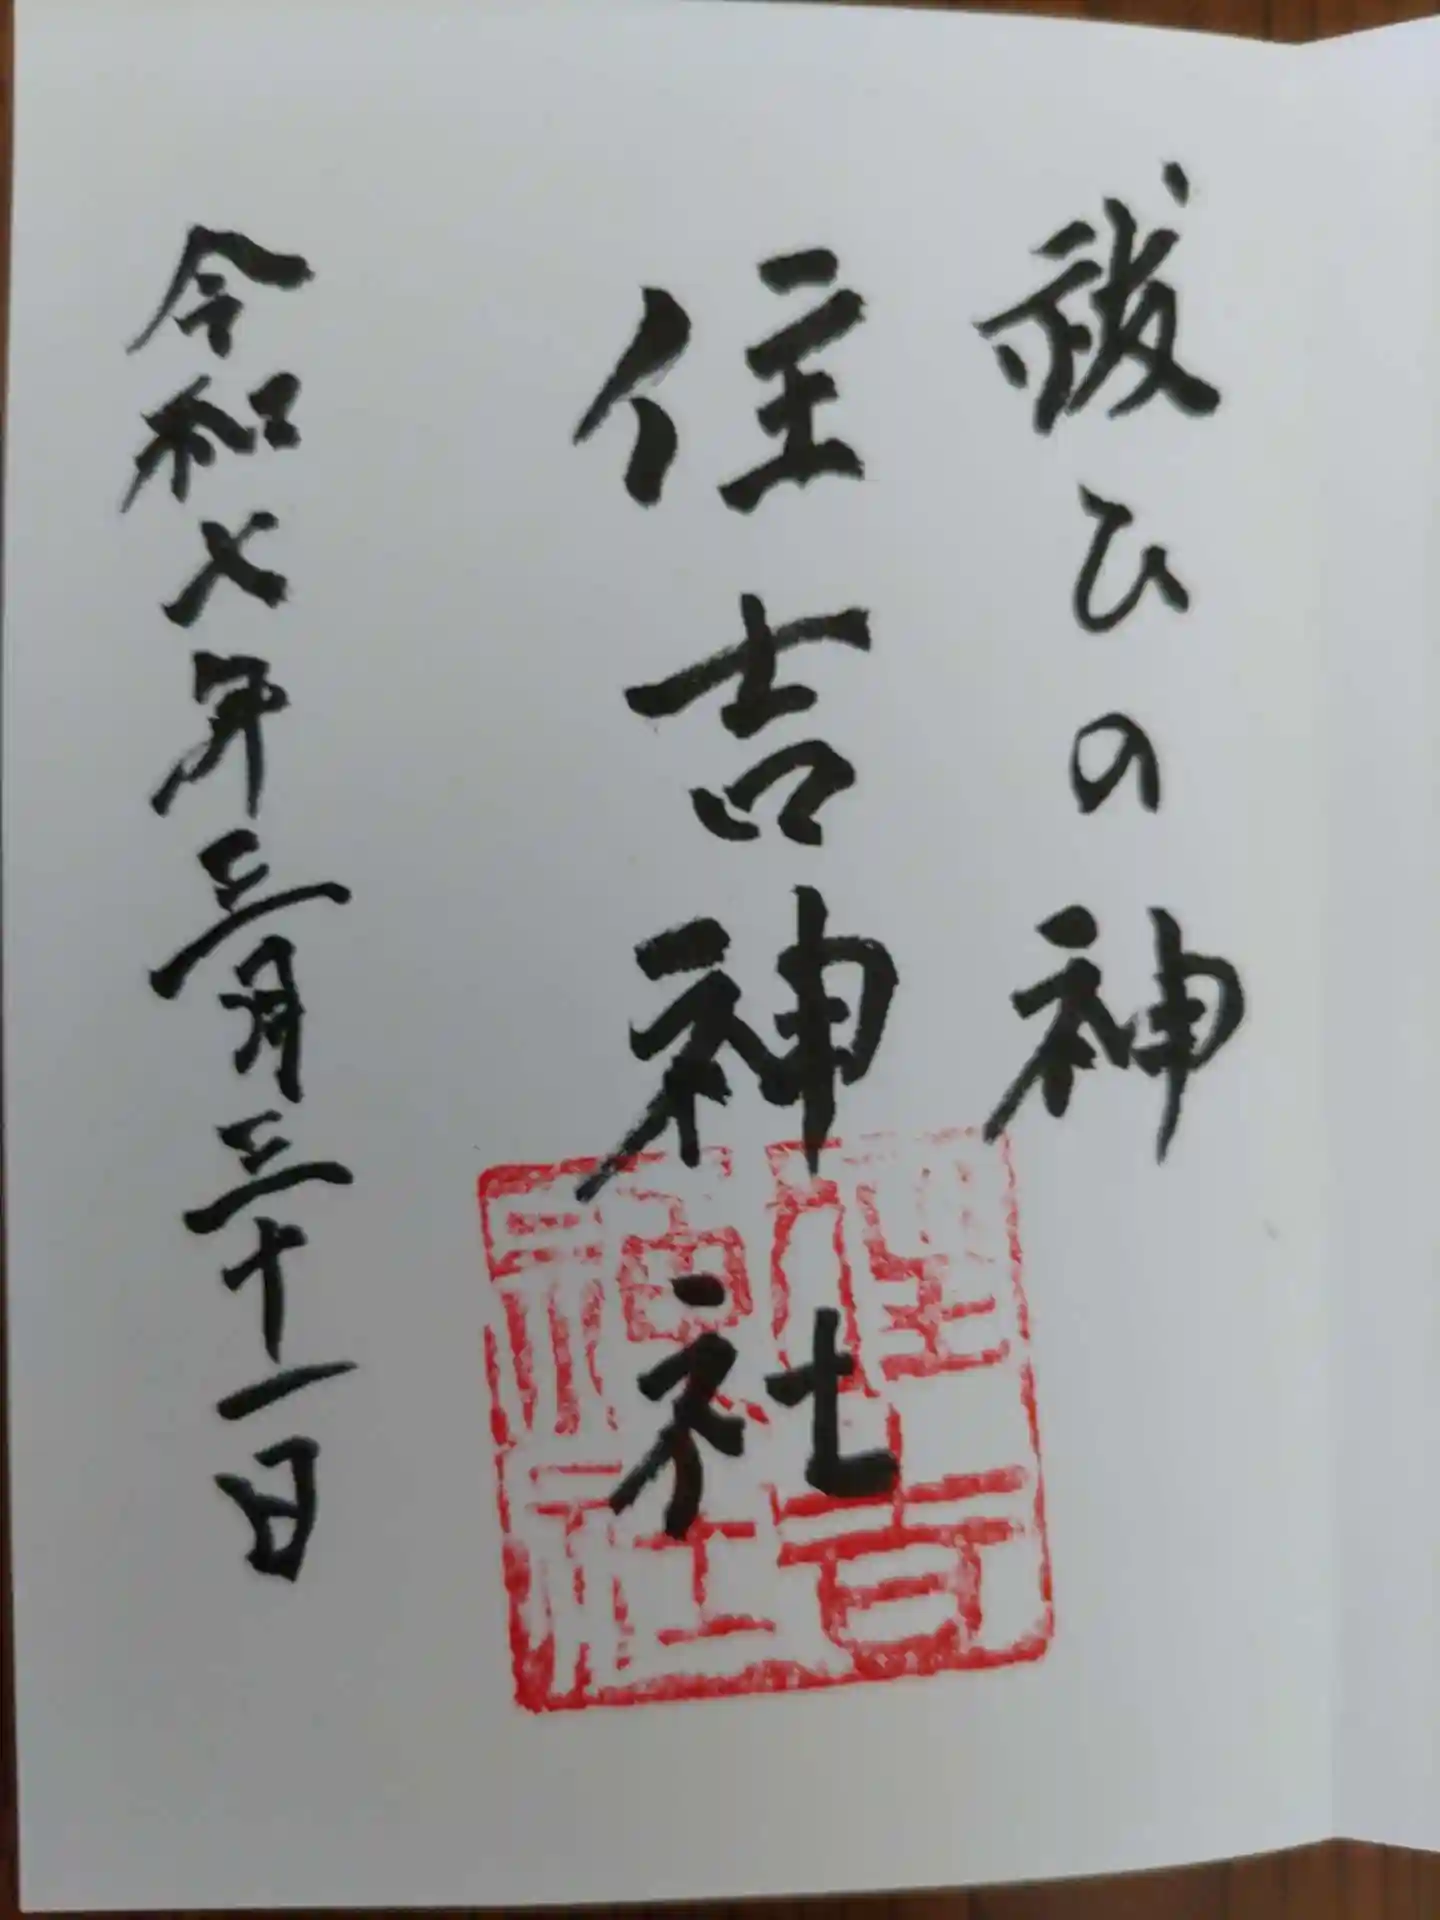 祓ひの神
住吉神社
令和七年三月三十一日
住吉
神社